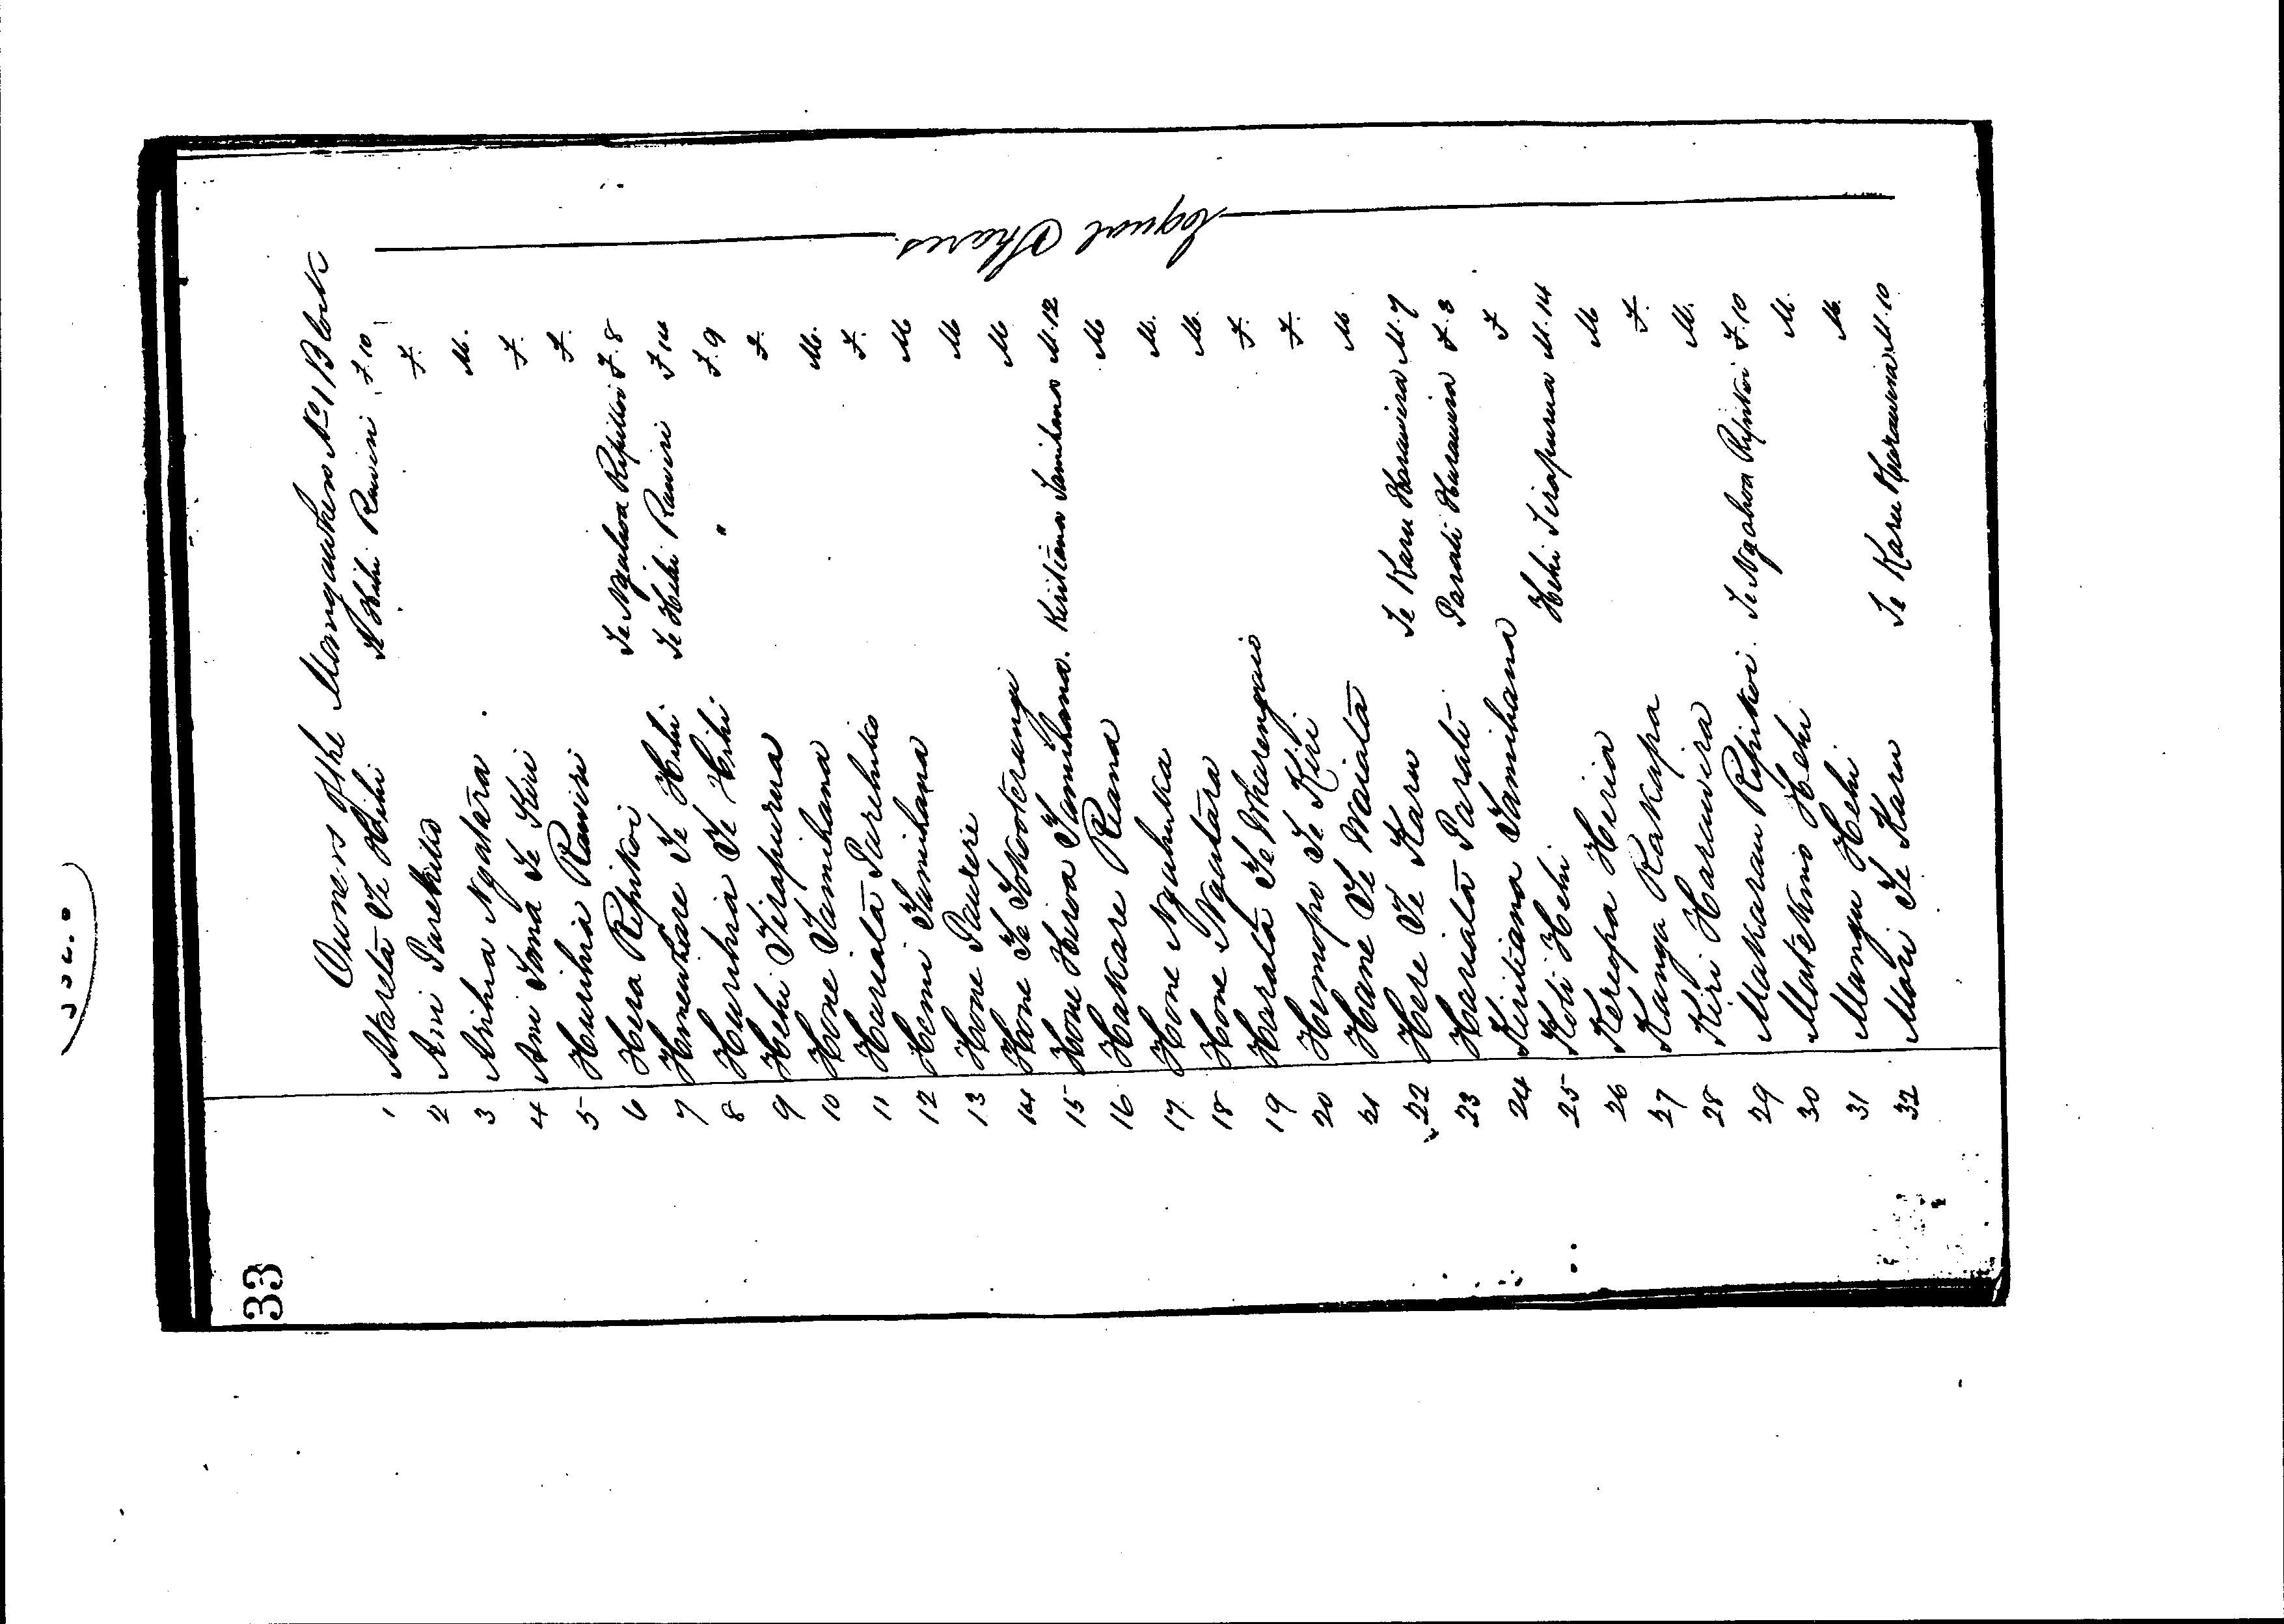 33
Owners of the Mangawhero No 1 B Block
1 Atareta Te Hihi Te Hihi Rawiri F. 10
2 Ani Parekiko F.
3 Arihia Ngatara M.
4 Ani Toma Te Kiri F.
5 Huruhia Rawiri F.
6 Hera Ripikoi Te Ngahoa Ripikoi F. 8
7 Te Hihi Te Hihi Rawiri F 14
8 Huruhia Te Hihi " F. 9
9 Hehi Tirapurua F.
10 Hone Tamihana M.
11 Hariata Parehuko F.
12 Hemi Tamihana M
13 Hone Paurere M
14 Hone Te M
15 Hone Hiroa Tamihana. Kiritiana Tamihana M. 12
16 Hakkare Piana M
17 Hone Ngahuka M.
18 Hone Ngatara M.
19 Harata Te Wharengaio F.
20 Hemopo Te Kiri F.
21 Hane Te Waiata M
22 Here Te Karu Te Karu Harawira M. 7
23 Hariata Parati Parati Harawira F. 3
24 Kiritiana Tamihana F
25 Koti Hehi Hehi Tirapurua M. 14
26 Kereopa Heria M
27 Kanga Rakapa F.
28 Kiri Harawira M.
29 Makarau Ripikoi. Te Ngahoa Ripikoi F. 10
30 Matekino Hehi M.
31 Mangu Hehi M.
32 Mori Te Karu Te Karu Harawira M. 10
Equal Shares